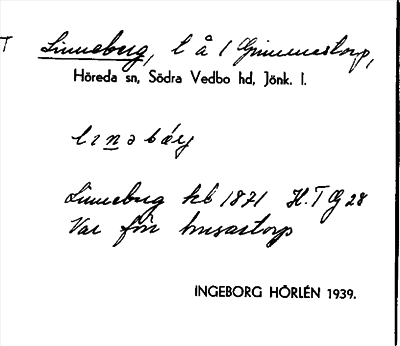 T Linneberg, t å / Grimmestorp,
Höreda sn, Södra Vedbo hd, Jönk. l.
linəbæ̀rj
Linneberg hb 1871 H.T G 28
Var förr husartorp
INGEBORG HÖRLÉN 1939.